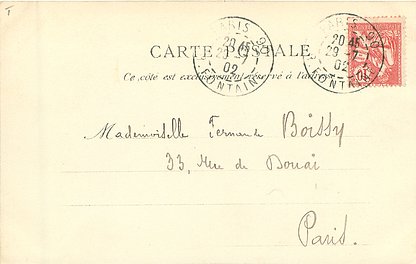 CARTE POSTALE
Ce côté est exclusivement réservé à l'adresse
PARIS
20 45
29 -7
02
FONTAINE
PARIS
20 45
29 -7
02
FONTAINE
Mademoiselle Fernande Boissy
33, Rue de Douai
Paris.